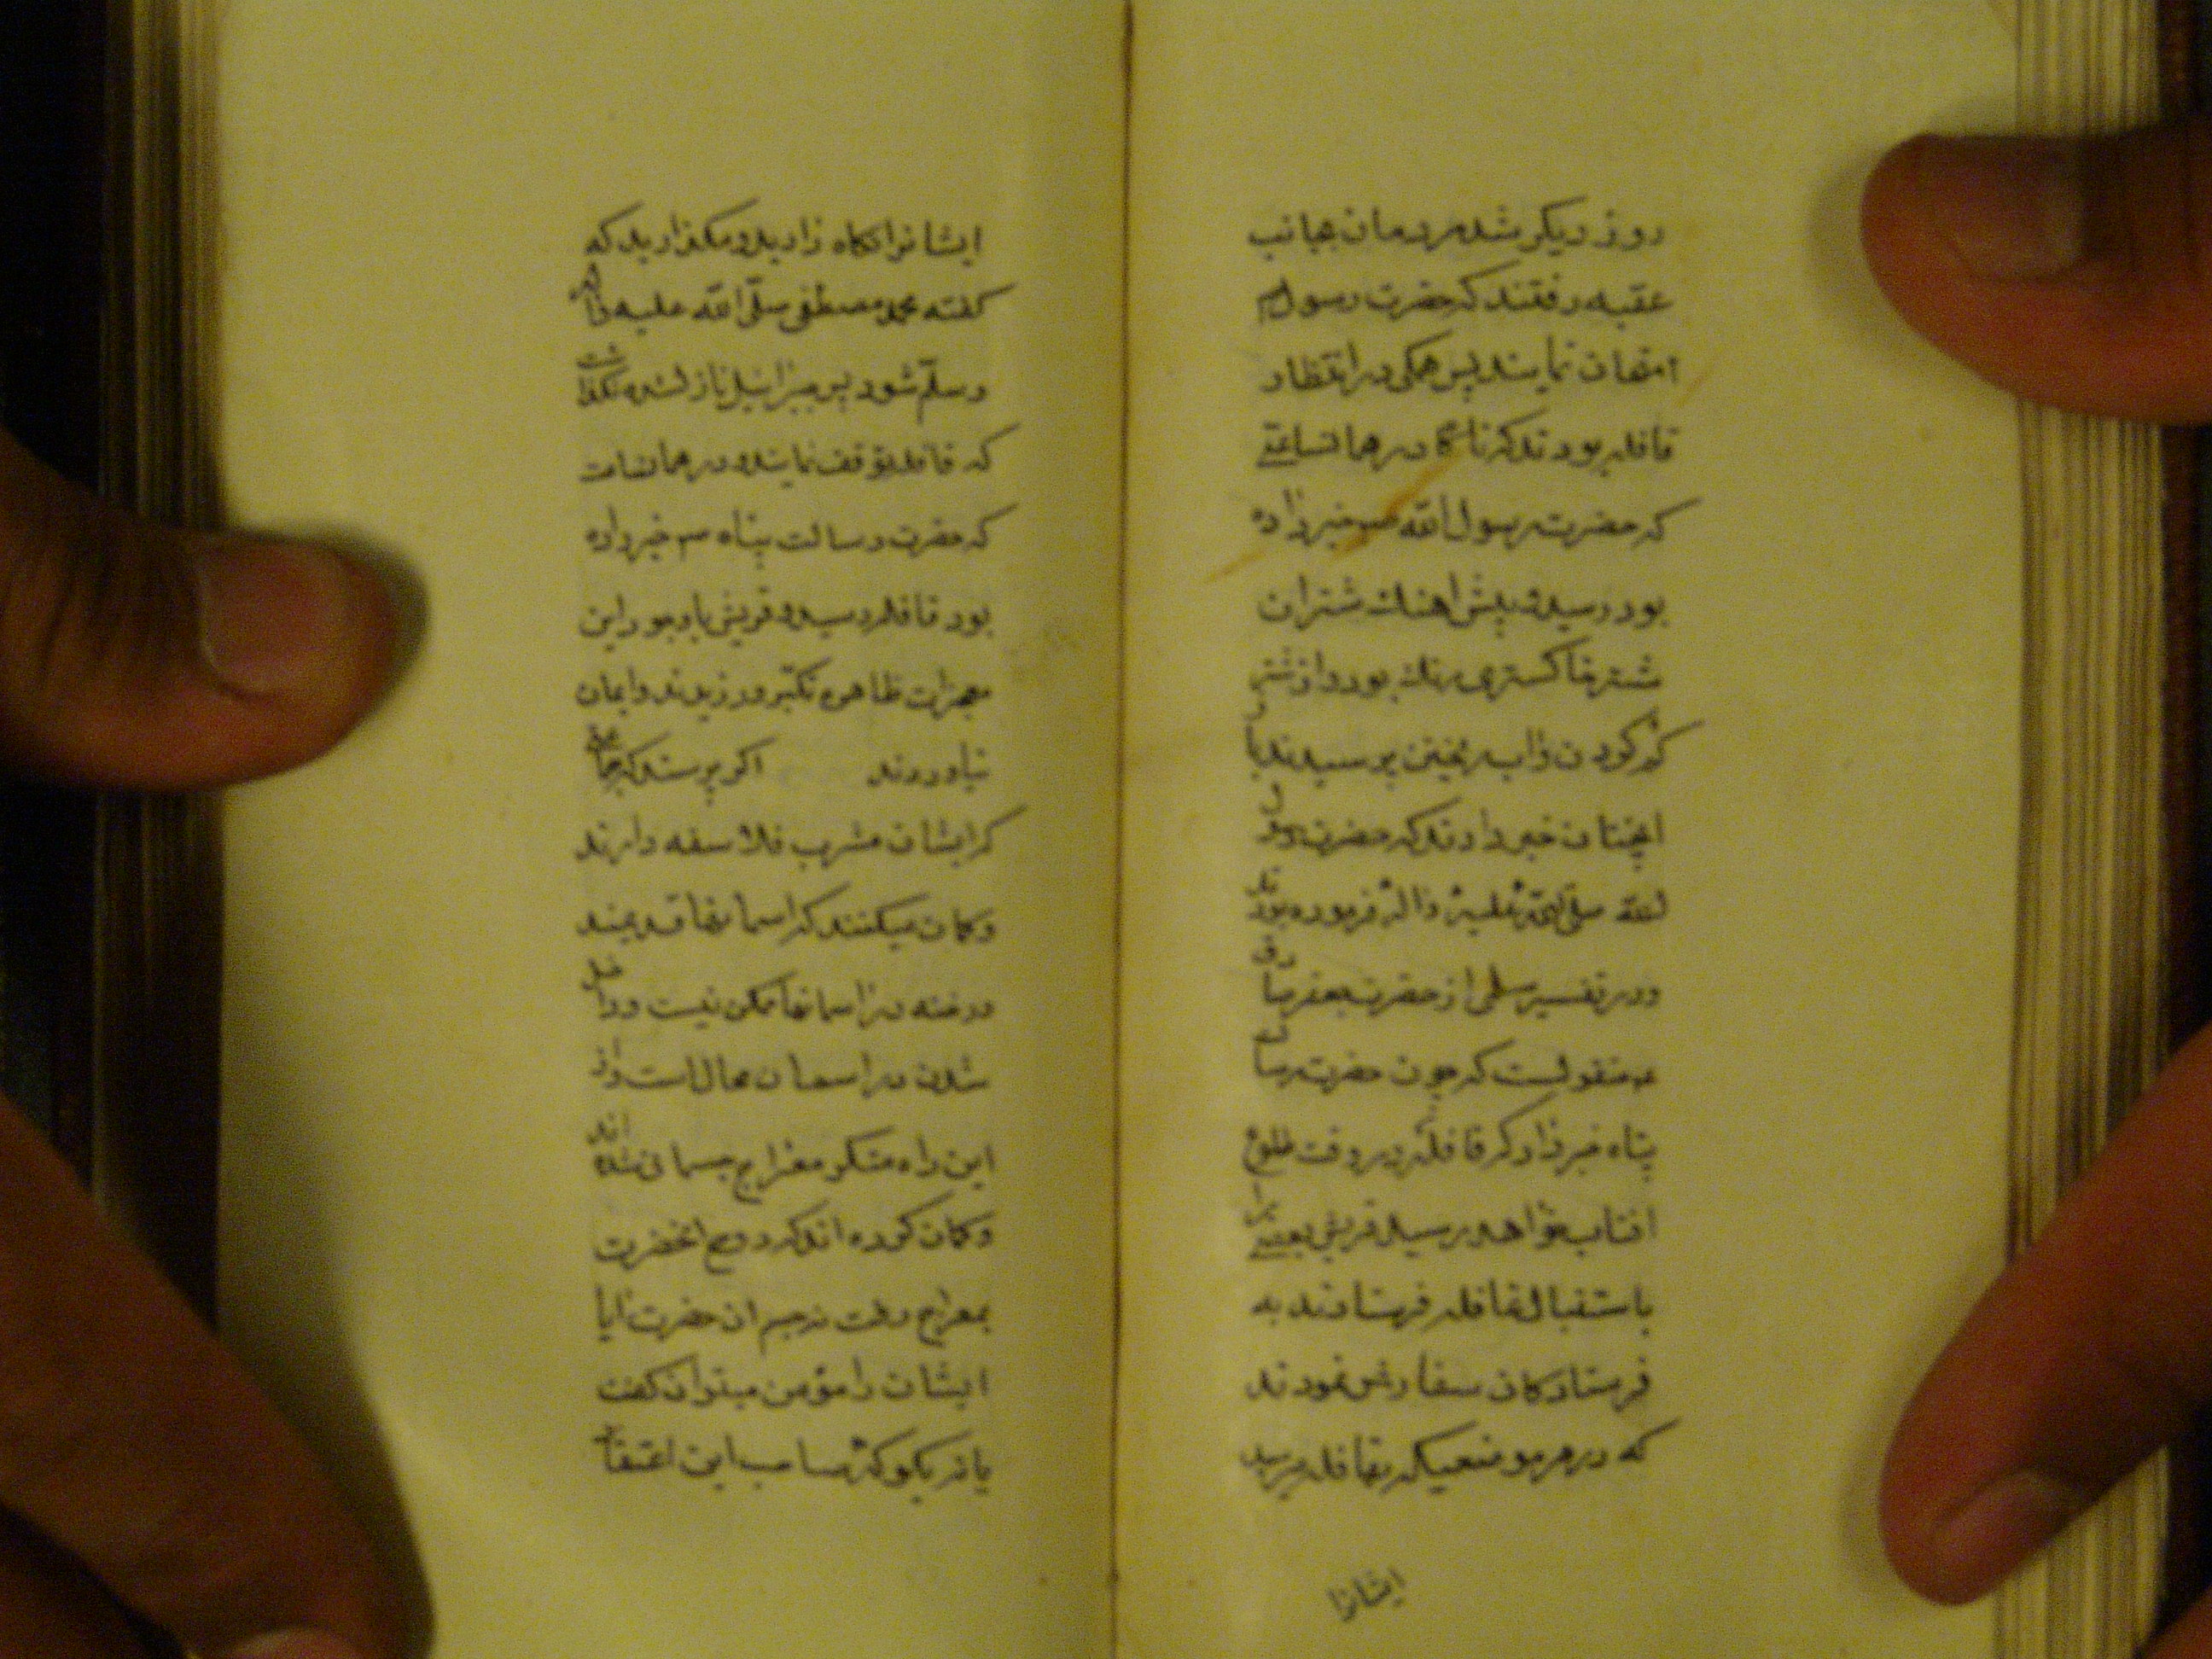 روز دیکر شد مردمان بجانب
عقبه رفتند که حضرت رسول را
امتحان نمایند پس همکی در انتظار
قافله بودند که ناکاه در همانساعتی
که حضرت رسول الله ص خبر داده
بود رسید و پیش اهنك شتران
شتر خاکستری رنك بود و از شتر
کم کردن و اب ریختن پرسیدند با
انچنان خبر دادند که حضرت رسول
الله صلی الله علیه و اله فرموده بودند
و در تفسیر سلمی از حضرت جعفر صادق
ع منقولست که چون حضرت رسالت
پناه خبر داد که قافله در وقت طلوع
افتاب خواهد رسید قریش بعضی را
باستقبال قافله فرستادند به
فرستادکان سفارش نمودند
که در هر موضعیکه بقافله میرسید
ایشانرا
ایشانرا نکاه دارید و مکذارید که
کفته محمد مصطفی صلی الله علیه و اله
وسلم شود پس جبرائیل نازل شده نکذاشت
که قافله توقف نمایند و در همانساعت
که حضرت رسالت پناه ص خبر داده
بود قافله رسید و قریش با وجود این
معجزات ظاهره تکبر ورزیدند و ایمان
نیاوردند اکر پرسند که جماعتی
که ایشان مشرب فلاسفه دارند
و کمان میکنند که اسمانها قدیمند
و رخنه در اسمانها ممکن نیست و داخل
شدن در اسمان محال است و از
این راه منکر معراج جسمانی شده اند
و کمان کرده اند که روح انحضرت
بمعراج رفت نه جسم ان حضرت ایا
ایشان را مؤمن میتوان کفت
یا نه بکو که صاحب این اعتقاد